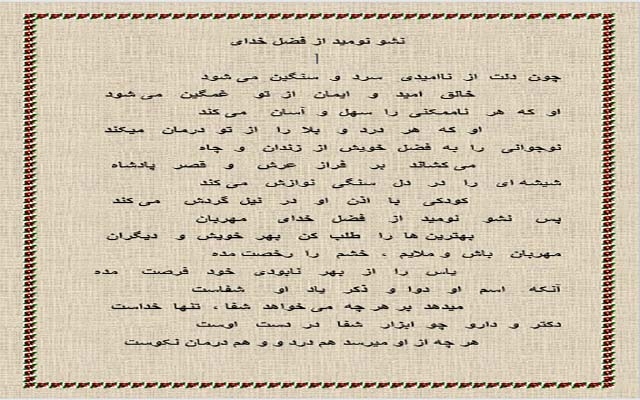 نشو نومید از فضل خدای
چون دلت از ناامیدی سرد و سنگین می شود
خالق امید و ایمان از تو غمگین می شود
او که هر ناممکنی را سهل و آسان می کند
او که هر درد و بلا را از تو درمان میکند
نوجوانی را به فضل خویش از زندان و چاه
می کشاند بر فراز عرش و قصر پادشاه
شیشه ای را در دل سنگی نوازش می کند
کودکی با اذن او در نیل گردش می کند
پس نشو نومید از فضل خدای مهربان
بهترین ها را طلب کن بهر خویش و دیگران
مهربان باش و ملایم ، خشم را رخصت مده
یاس را از بهر نابودی خود فرصت مده
آنکه اسم او دوا و ذکر یاد او شفاست
میدهد بر هر چه می خواهد شفا ، تنها خداست
دکتر و دارو چو ابزار شفا در دست اوست
هر چه از او میرسد هم درد و و هم درمان نکوست